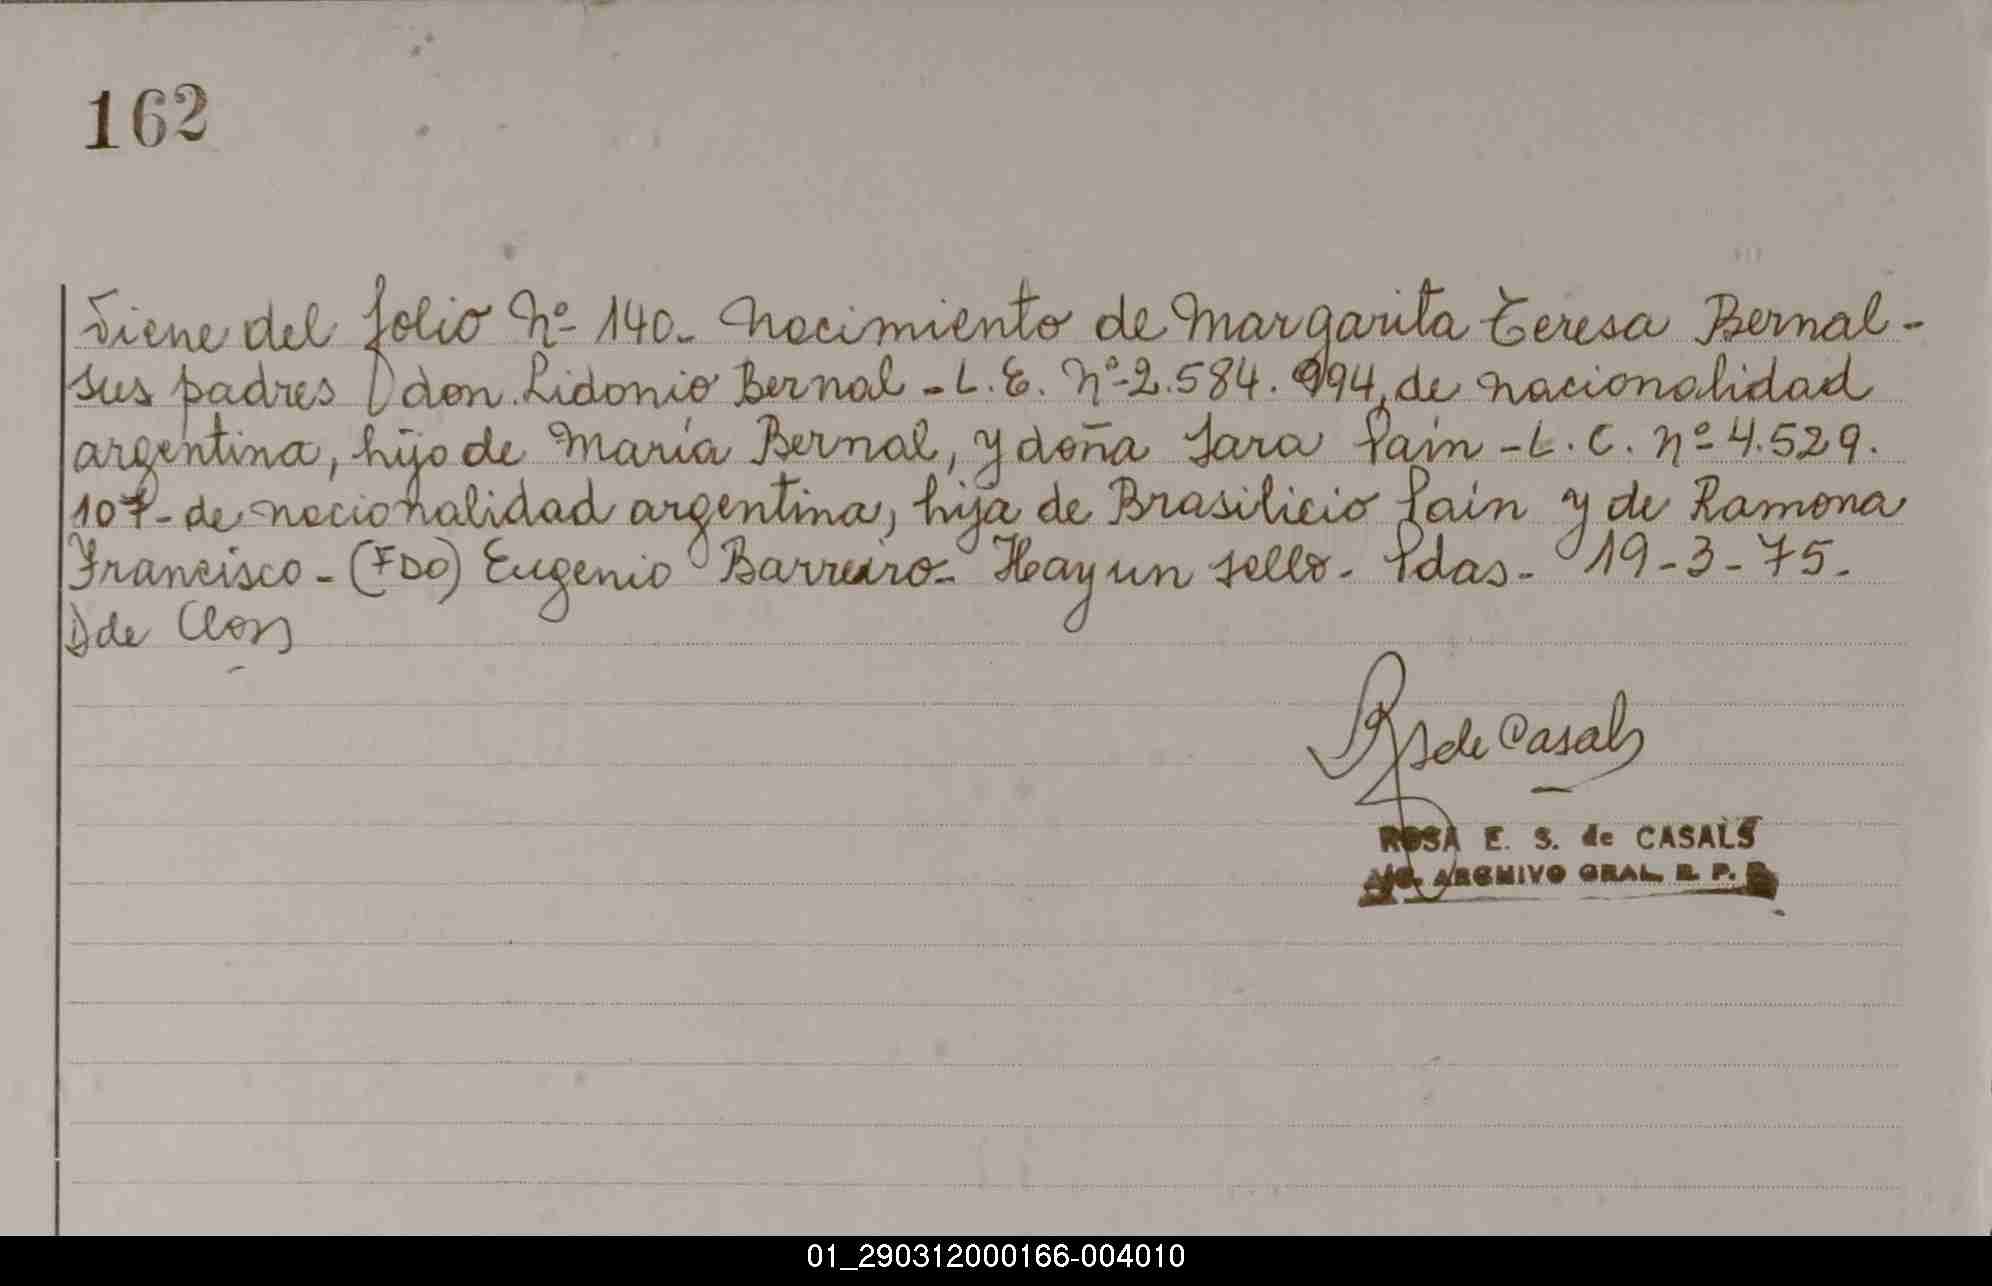 162
Viene del folio Nº 140- Nacimiento de Margarita Teresa Bernal-
sus padres don Lidonio Bernal - L. E. Nº-2.584.994, de nacionalidad
argentina, hijo de María Bernal, y doña Sara Pain - L. C. Nº 4.529.
107- de nacionalidad argentina, hija de Brasilicio Pain y de Ramona
Francisco - (FDO) Eugenio Barreiro- Hay un sello- Pdas- 19-3-75-
de
RS de Casals
ROSA E. S. de CASALS
ARCHIVO GRAL R. P.
01_290312000166-004010